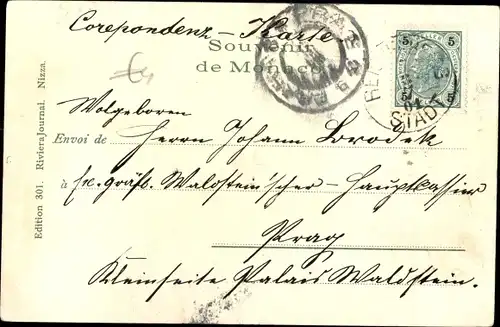 Corepondenz-Karte
Souvenir
de Monaco
Wolgeboren
Envoi de Herrn Johann Brodek
à gräfl. Waldstein'scher Hauptkassier
Prag
Kleinseite Palais Waldstein.
Edition 301. RivieraJournal. Nizza.
5 5
5 5
STADT